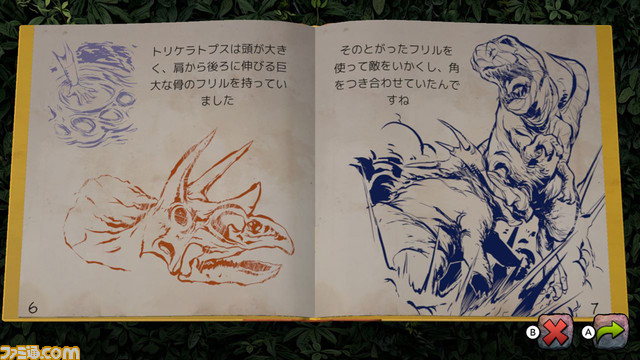 トリケラトプスは頭が大き
く、肩から後ろに伸びる巨
大な骨のフリルを持ってい
ました
そのとがったフリルを
使って敵をいかくし、角
をつき合わせていたんで
すね
6
7
B
A
ファミ通.com